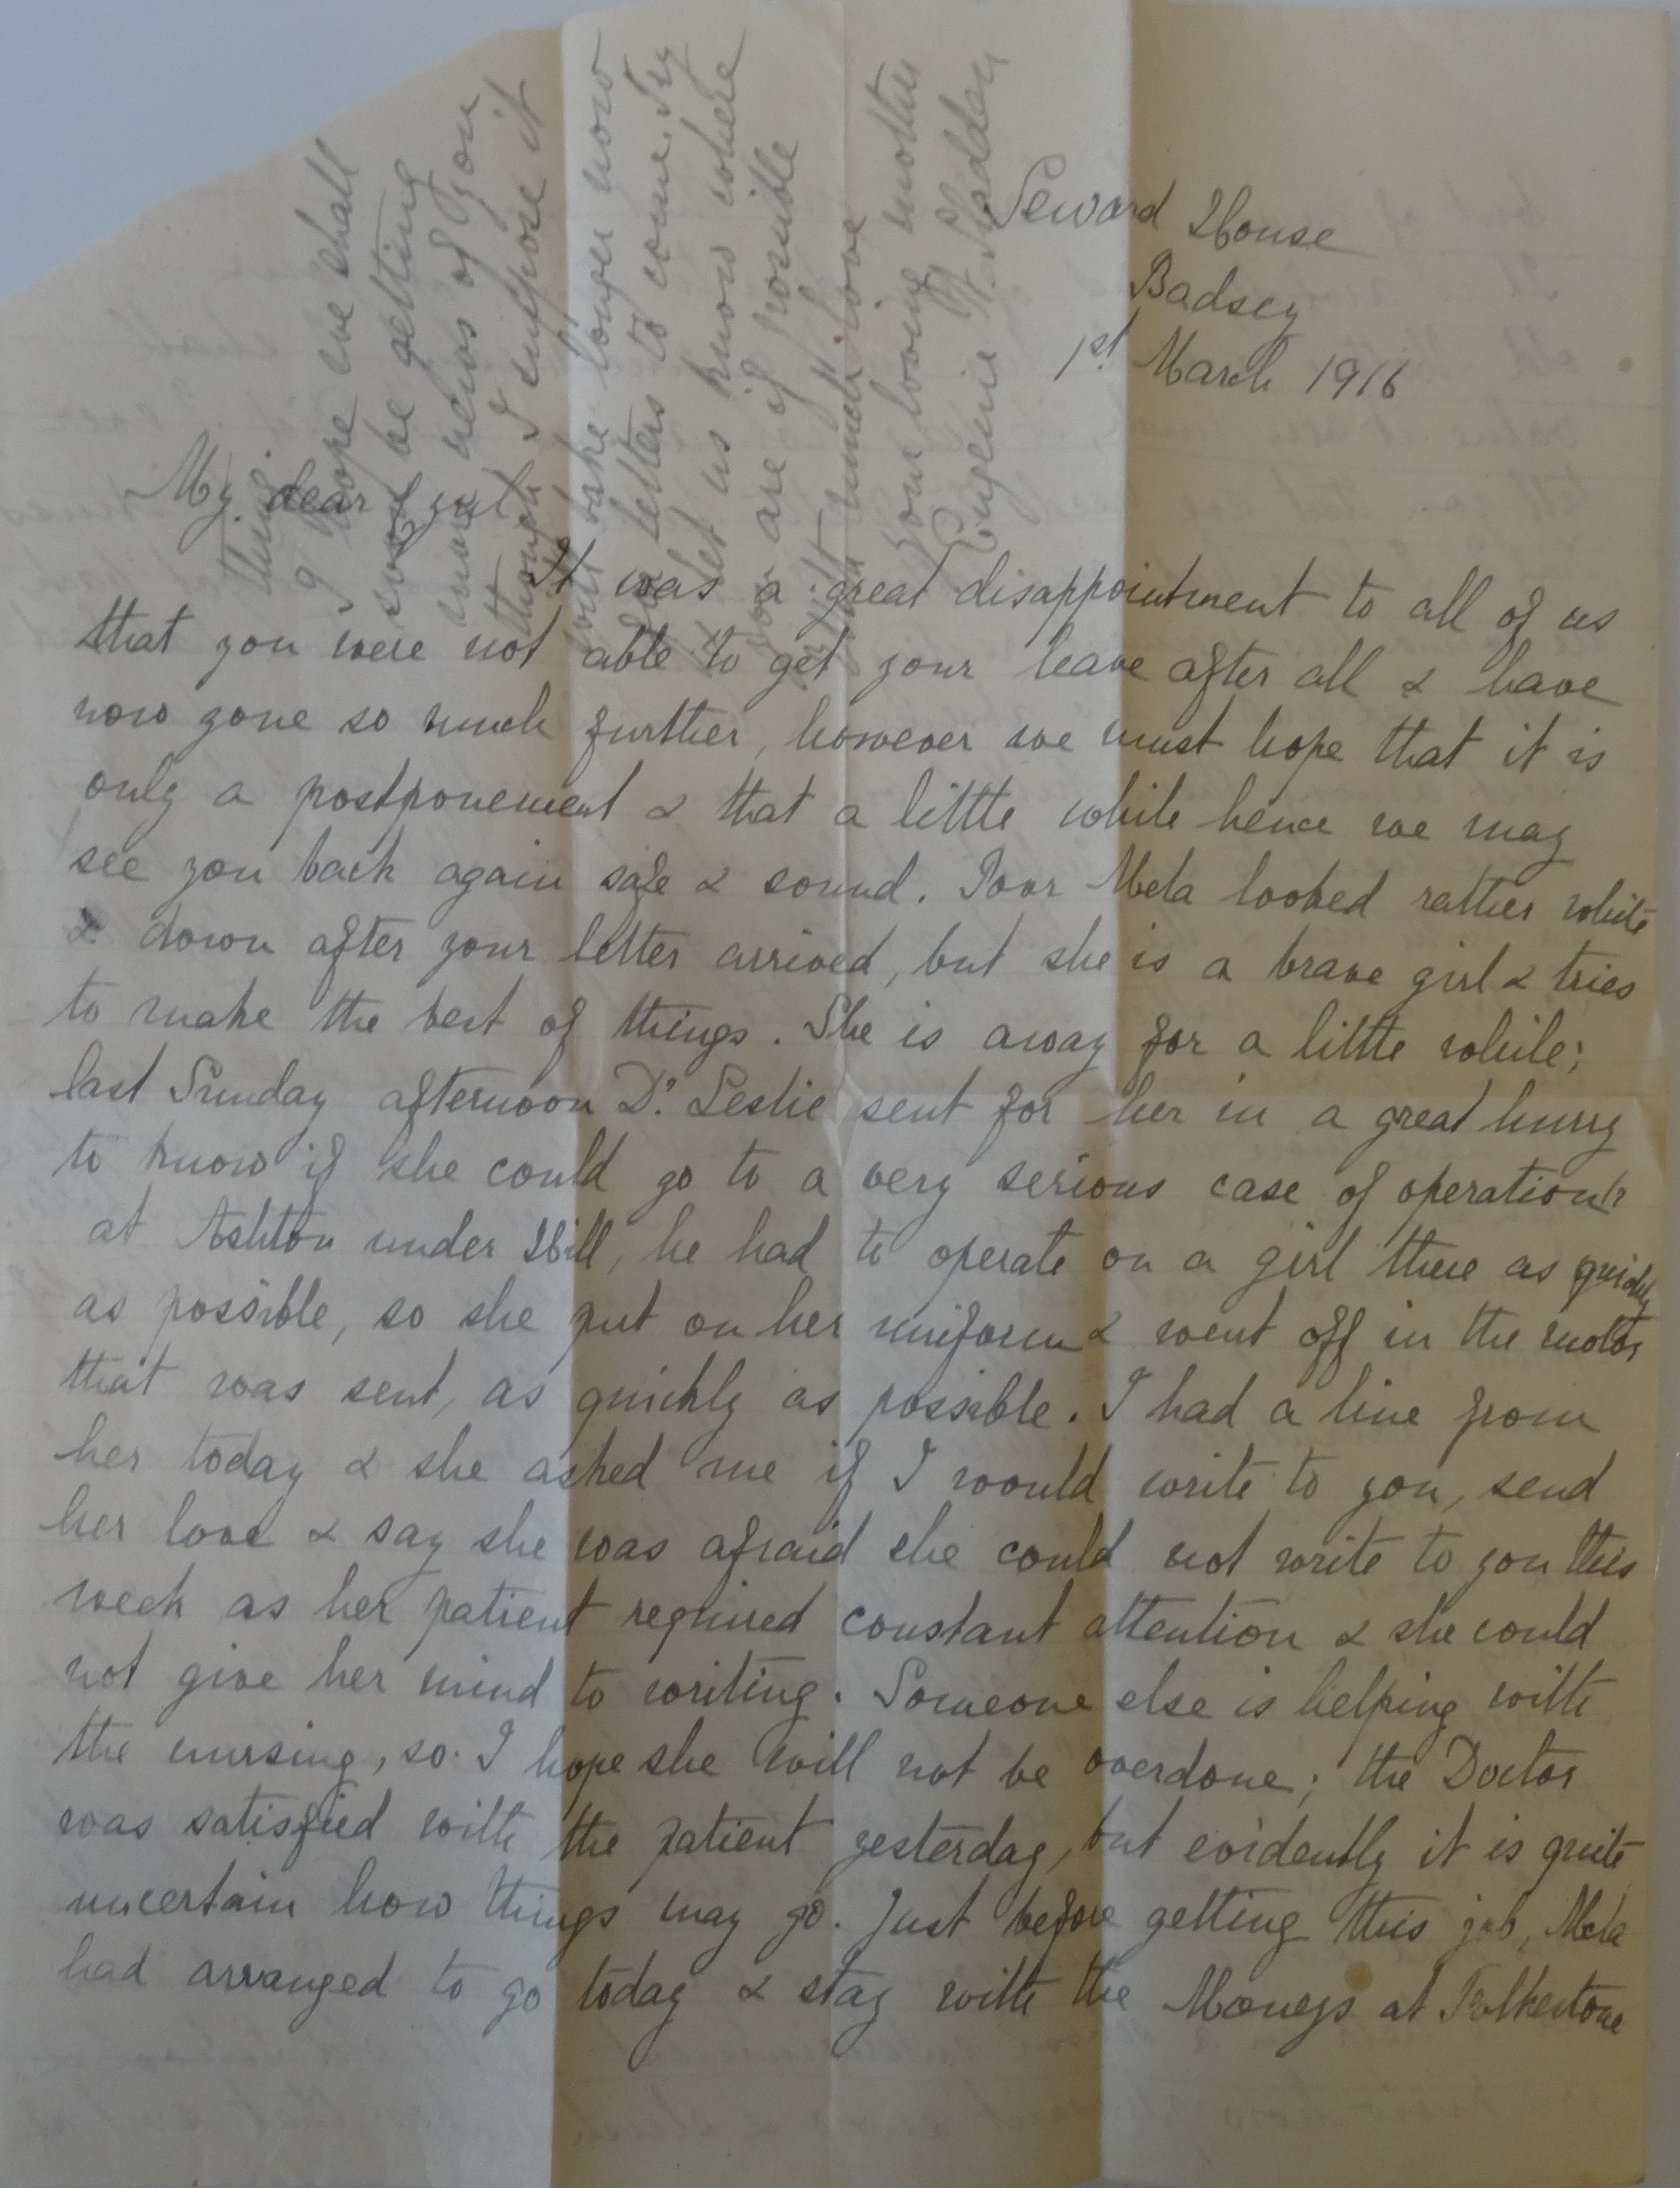 Seward House
Badsey
1st March 1916
My dear Jul
It was a great disappointment to all of us
that you were not able to get your leave after all & have
now gone so much further, however we must hope that it is
only a postponement & that a little while hence we may
see you back again safe & sound. Poor Mela looked rather white
& down after your letter arrived, but she is a brave girl & tries
to make the best of things. She is away for a little while;
last Sunday afternoon Dr. Leslie sent for her in a great hurry
to know if she could go to a very serious case of operation
at Ashton under Hill, he had to operate on a girl there as quickly
as possible, so she put on her uniform & went off in the motor
that was sent, as quickly as possible. I had a line from
her today & she asked me if I would write to you, send
her love & say she was afraid she could not write to you this
week as her patient required constant attention & she could
not give her mind to writing. Someone else is helping with
the nursing, so I hope she will not be overdone; the Doctor
was satisfied with the patient yesterday, but evidently it is quite
uncertain how things may go. Just before getting this job, Mela
had arranged to go today & stay with the Moneys at Folkestone
time.
I hope we shall
soon be getting
more news of you
though I suppose it
will take longer now
for letters to come. Try
& let us know where
you are if possible
with much love
your loving mother
Eugénie H. Sladden